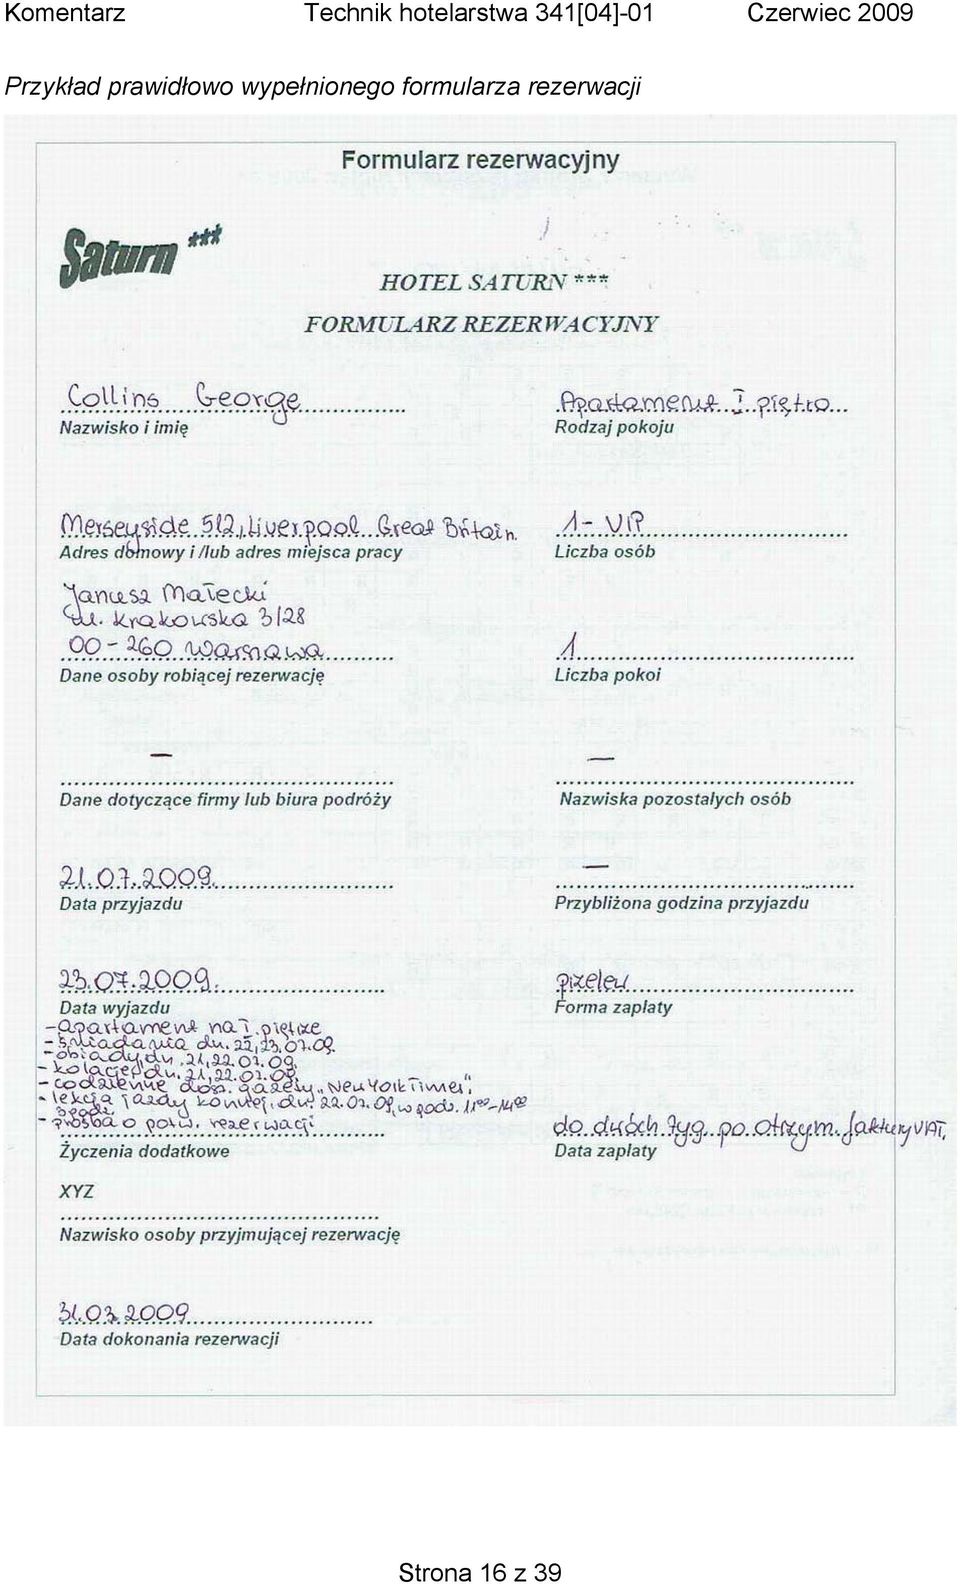 Komentarz Technik hotelarstwa 341[04]-01 Czerwiec 2009
Przykład prawidłowo wypełnionego formularza rezerwacji
Formularz rezerwacyjny
Saturn ***
HOTEL SATURN ***
FORMULARZ REZERWACYJNY
Collins George
Apartament I piętro
Nazwisko i imię
Rodzaj pokoju
Merseyside 512, Liverpool Great Britain
1 - VIP
Adres domowy i /lub adres miejsca pracy
Liczba osób
Janusz Małecki
ul. Krakowska 3/28
00-260 Warszawa
1
Dane osoby robiącej rezerwację
Liczba pokoi
–
–
Dane dotyczące firmy lub biura podróży
Nazwiska pozostałych osób
21.07.2009.
–
Data przyjazdu
Przybliżona godzina przyjazdu
23.07.2009.
przelew
Data wyjazdu
Forma zapłaty
- apartament na I piętrze
- śniadania dn. 22,23.07.09.
- obiady dn. 21,22.07.09.
- kolacje dn. 21,22.07.09.
- codzienne dost. gazety „New York Times",
- lekcja jazdy konnej, dn. 22.07.09, w godz. 11⁰⁰-14⁰⁰
3 godz.
- prośba o potw. rezerwacji
do dwóch tyg. po otrzym. faktury VAT.
Życzenia dodatkowe
Data zapłaty
XYZ
Nazwisko osoby przyjmującej rezerwację
31.03.2009
Data dokonania rezerwacji
Strona 16 z 39